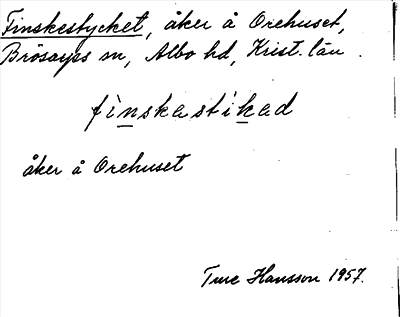 Finskestycket, åker å Orehuset,
Brösarps sn, Albo hd, Krist. län.
finskastikad
åker å Orehuset
Ture Hansson 1957.